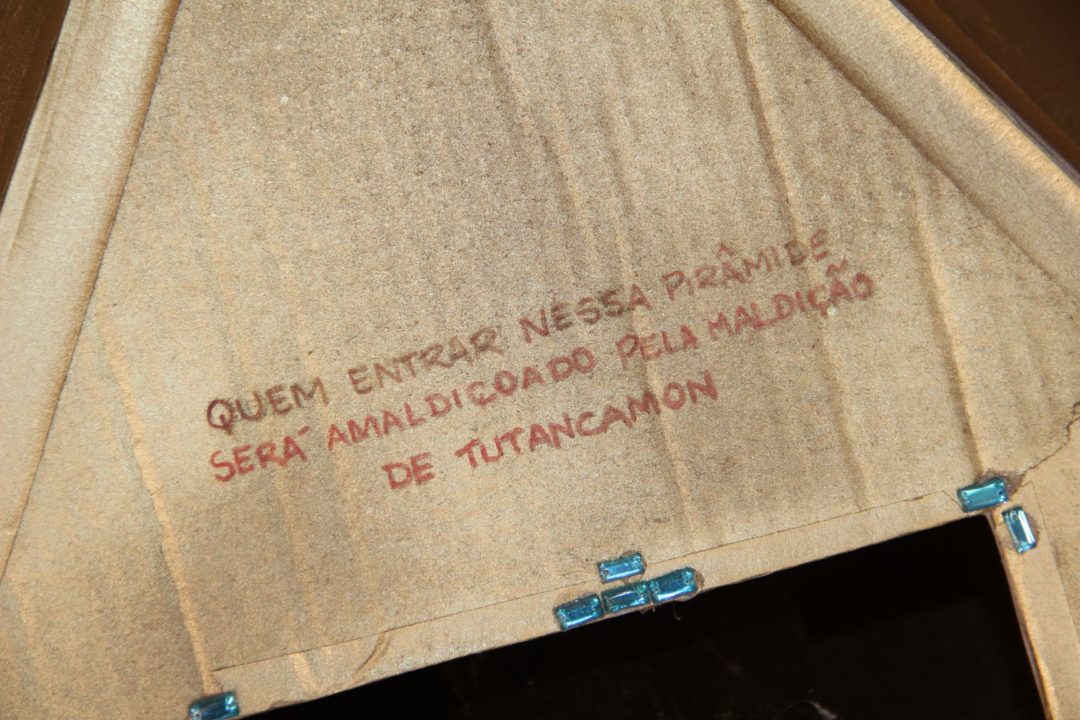 QUEM ENTRAR NESSA PIRÂMIDE
SERÁ AMALDIÇOADO PELA MALDIÇÃO
DE TUTANCAMON